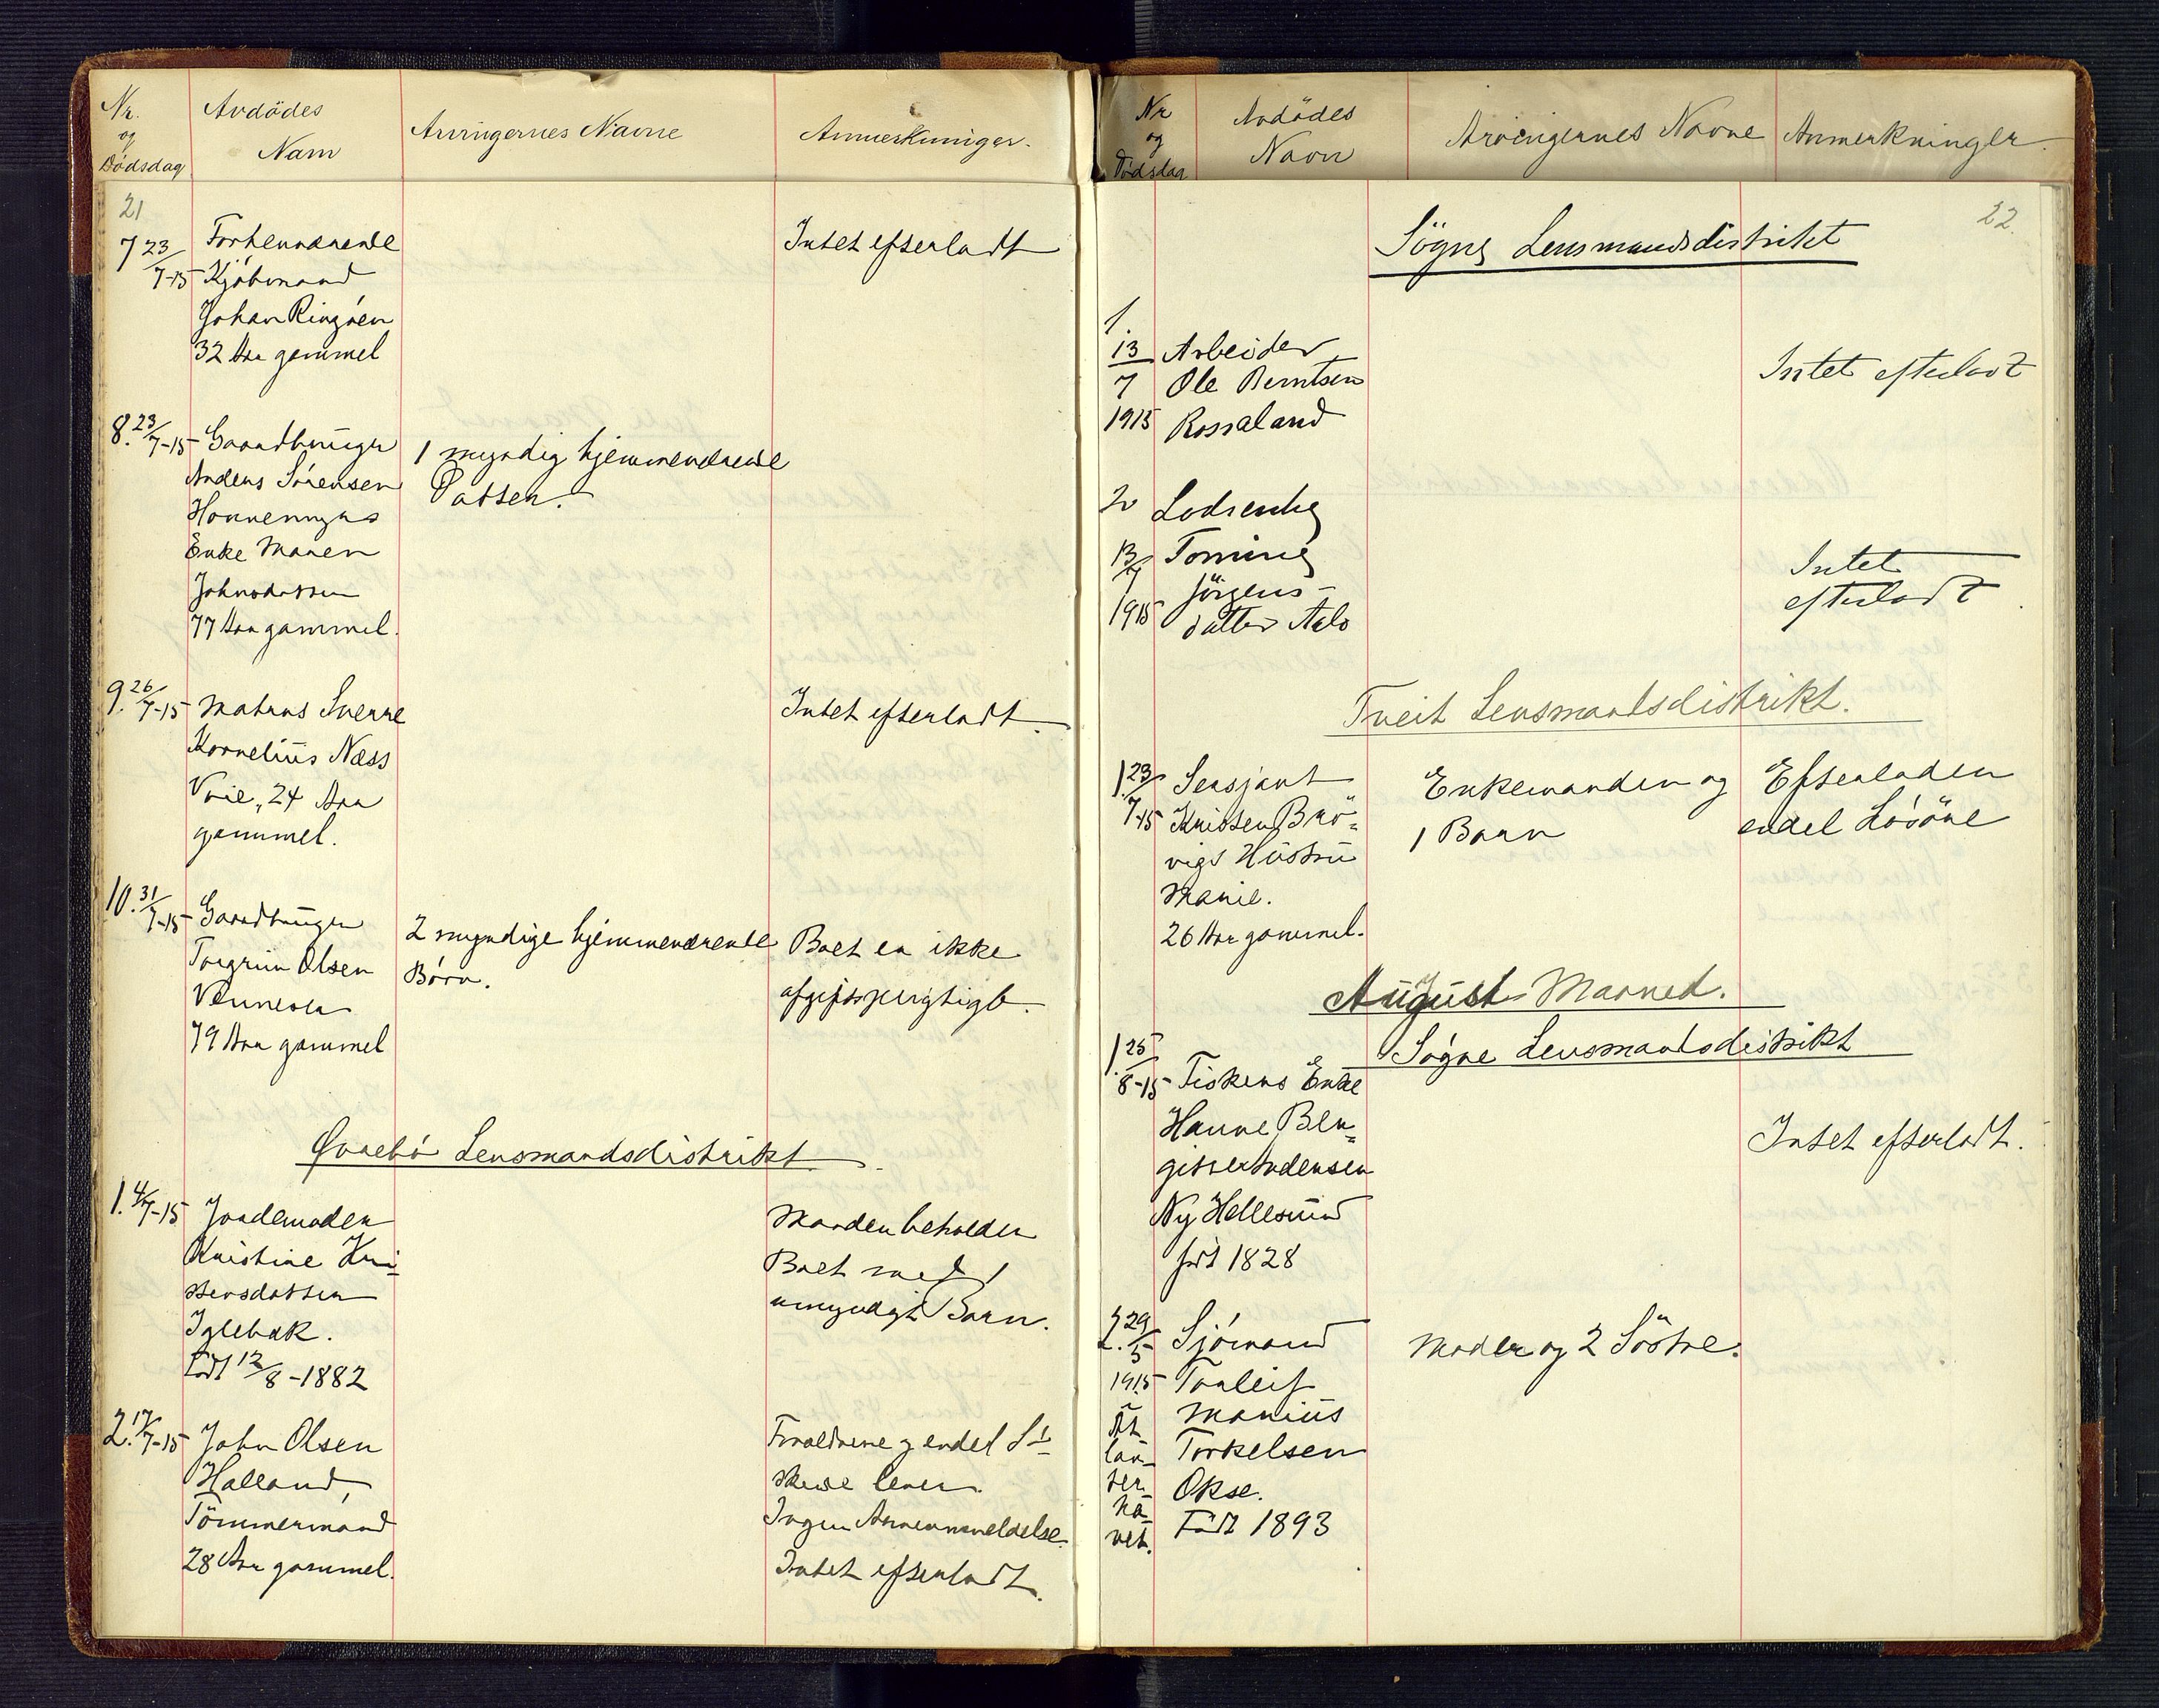 Nr.
og
Dödsdag
Avdödes
Navn
Arvingernes Navne
Anmerkninger.
21
7 23/7-15
Forhenværende
Kjøbmand
Johan Ringøen
32 Aar gammel
Intet efterladt
8. 23/7-15
Gaardbruger
Anders Sørensen
Enke Maren
Johnsdatter
77 Aar gammel.
1 myndig hjemmeværende
Datter.
9. 26/7-15
Matros Sverre
Kornelius Næss
Voie, 24 Aar
gammel.
Intet efterladt.
10. 31/7-15
Gaardbruger
Torgrim Olsen
Vennesla
79 Aar gammel
2 myndige hjemmeværende
Børn.
Boet er ikke
afgiftspligtigt.
Øvrebø Lensmandsdistrikt.
1. 4/7-15
Jordemoder
Kristine Kri-
stensdatter
Iglebæk.
Født 12/8-1882
Manden beholder
Boet med 1
umyndigt Barn.
2. 17/7-15
John Olsen
Halland,
Tömmermand
28 Aar gammel.
Forældrene og endel Sø-
skende lever.
Ingen
Intet efterladt.
Nr
og
Dödsdag
Avdödes
Navn
Arvingernes Navne
Anmerkninger.
22.
Sögne Lensmandsdistrikt
1.
13
7
1915
Arbeider
Ole Berntsen
Rossaland
Intet efterladt
2
13/7
1915
Lodsenke
Tomine
Jörgens-
datter Aalo
Intet
efterladt
Tveit Lensmandsdistrikt.
1. 23/7-15
Sersjant
Kristen Brö-
vigs Hustru
Marie.
26 Aar gammel.
Enkemanden og
1 Barn
Efterladen
endel Lösöre
August Maaned.
Søgne Lensmandsdistrikt
1. 25/8-15
Fiskers Enke
Hanne Bir-
gitte
Ny Hellesund
født 1828
Intet efterladt.
2. 29/5
1915
At-
lan-
ter-
ha-
vet.
Sjömand
Torleif
Marius
Torkelsen
Okse.
Født 1893
Moder og 2 Söstre.